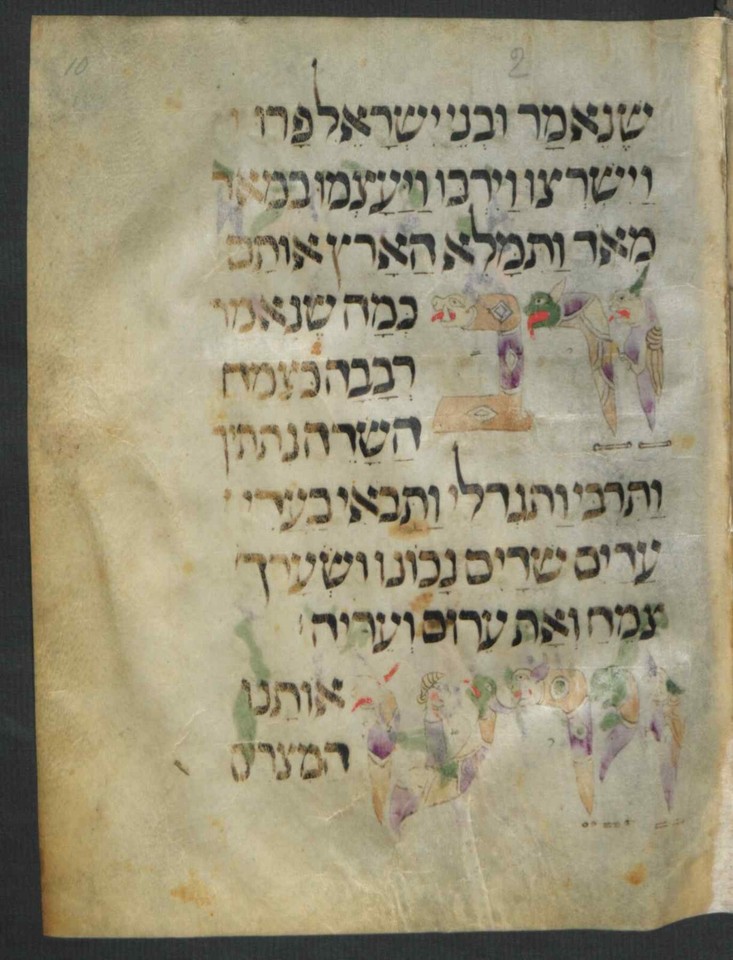 10
2
שנאמר ובני ישראל פרו
וישרצו וירבו ויעצמו במאד
מאד ותמלא הארץ אותם
ורב כמה שנאמר
רבבה כצמח
השדה נתתיך
ותרבי ותגדלי ותבאי בעדי
עדים שדים נכונו ושערך
צמח ואת ערום ועריה
וירעו אותנו
המצרים